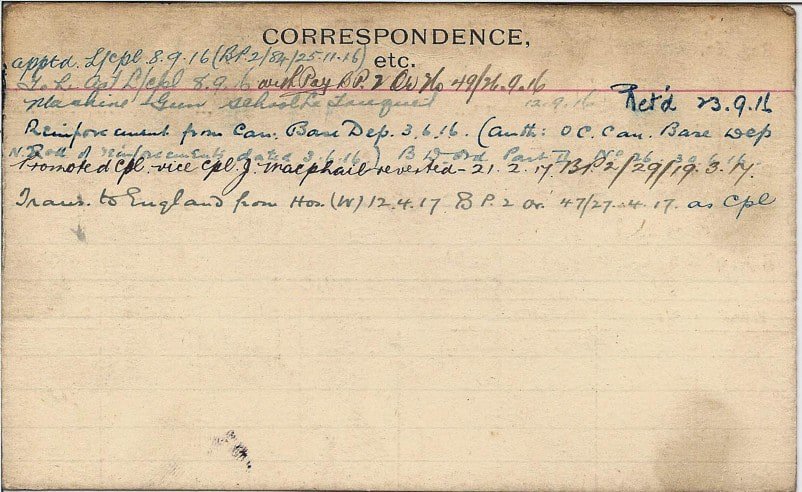 CORRESPONDENCE,
etc.
apptd. L/cpl 8.9.16 (BP.2/84/25.11.16)
To be L/cpl 8.9.16 with Pay BP. 2 Or No 49/26.9.16
Machine Gun School Le Touquet 12.9.16 Ret'd 23.9.16
Reinforcement from Can. Base Dep. 3.6.16. (Auth: O C. Can. Base Dep
N. Roll of reinforcements dated 3.6.16) B Part II No 26 30.6.16.
Promoted Cpl. vice Cpl. J. Macphail reverted - 21.2.17 BP.2/29/19.3.17.
Trans. to England from Hos. (W) 12.4.17 BP.2 Or. 47/27.4.17. as Cpl